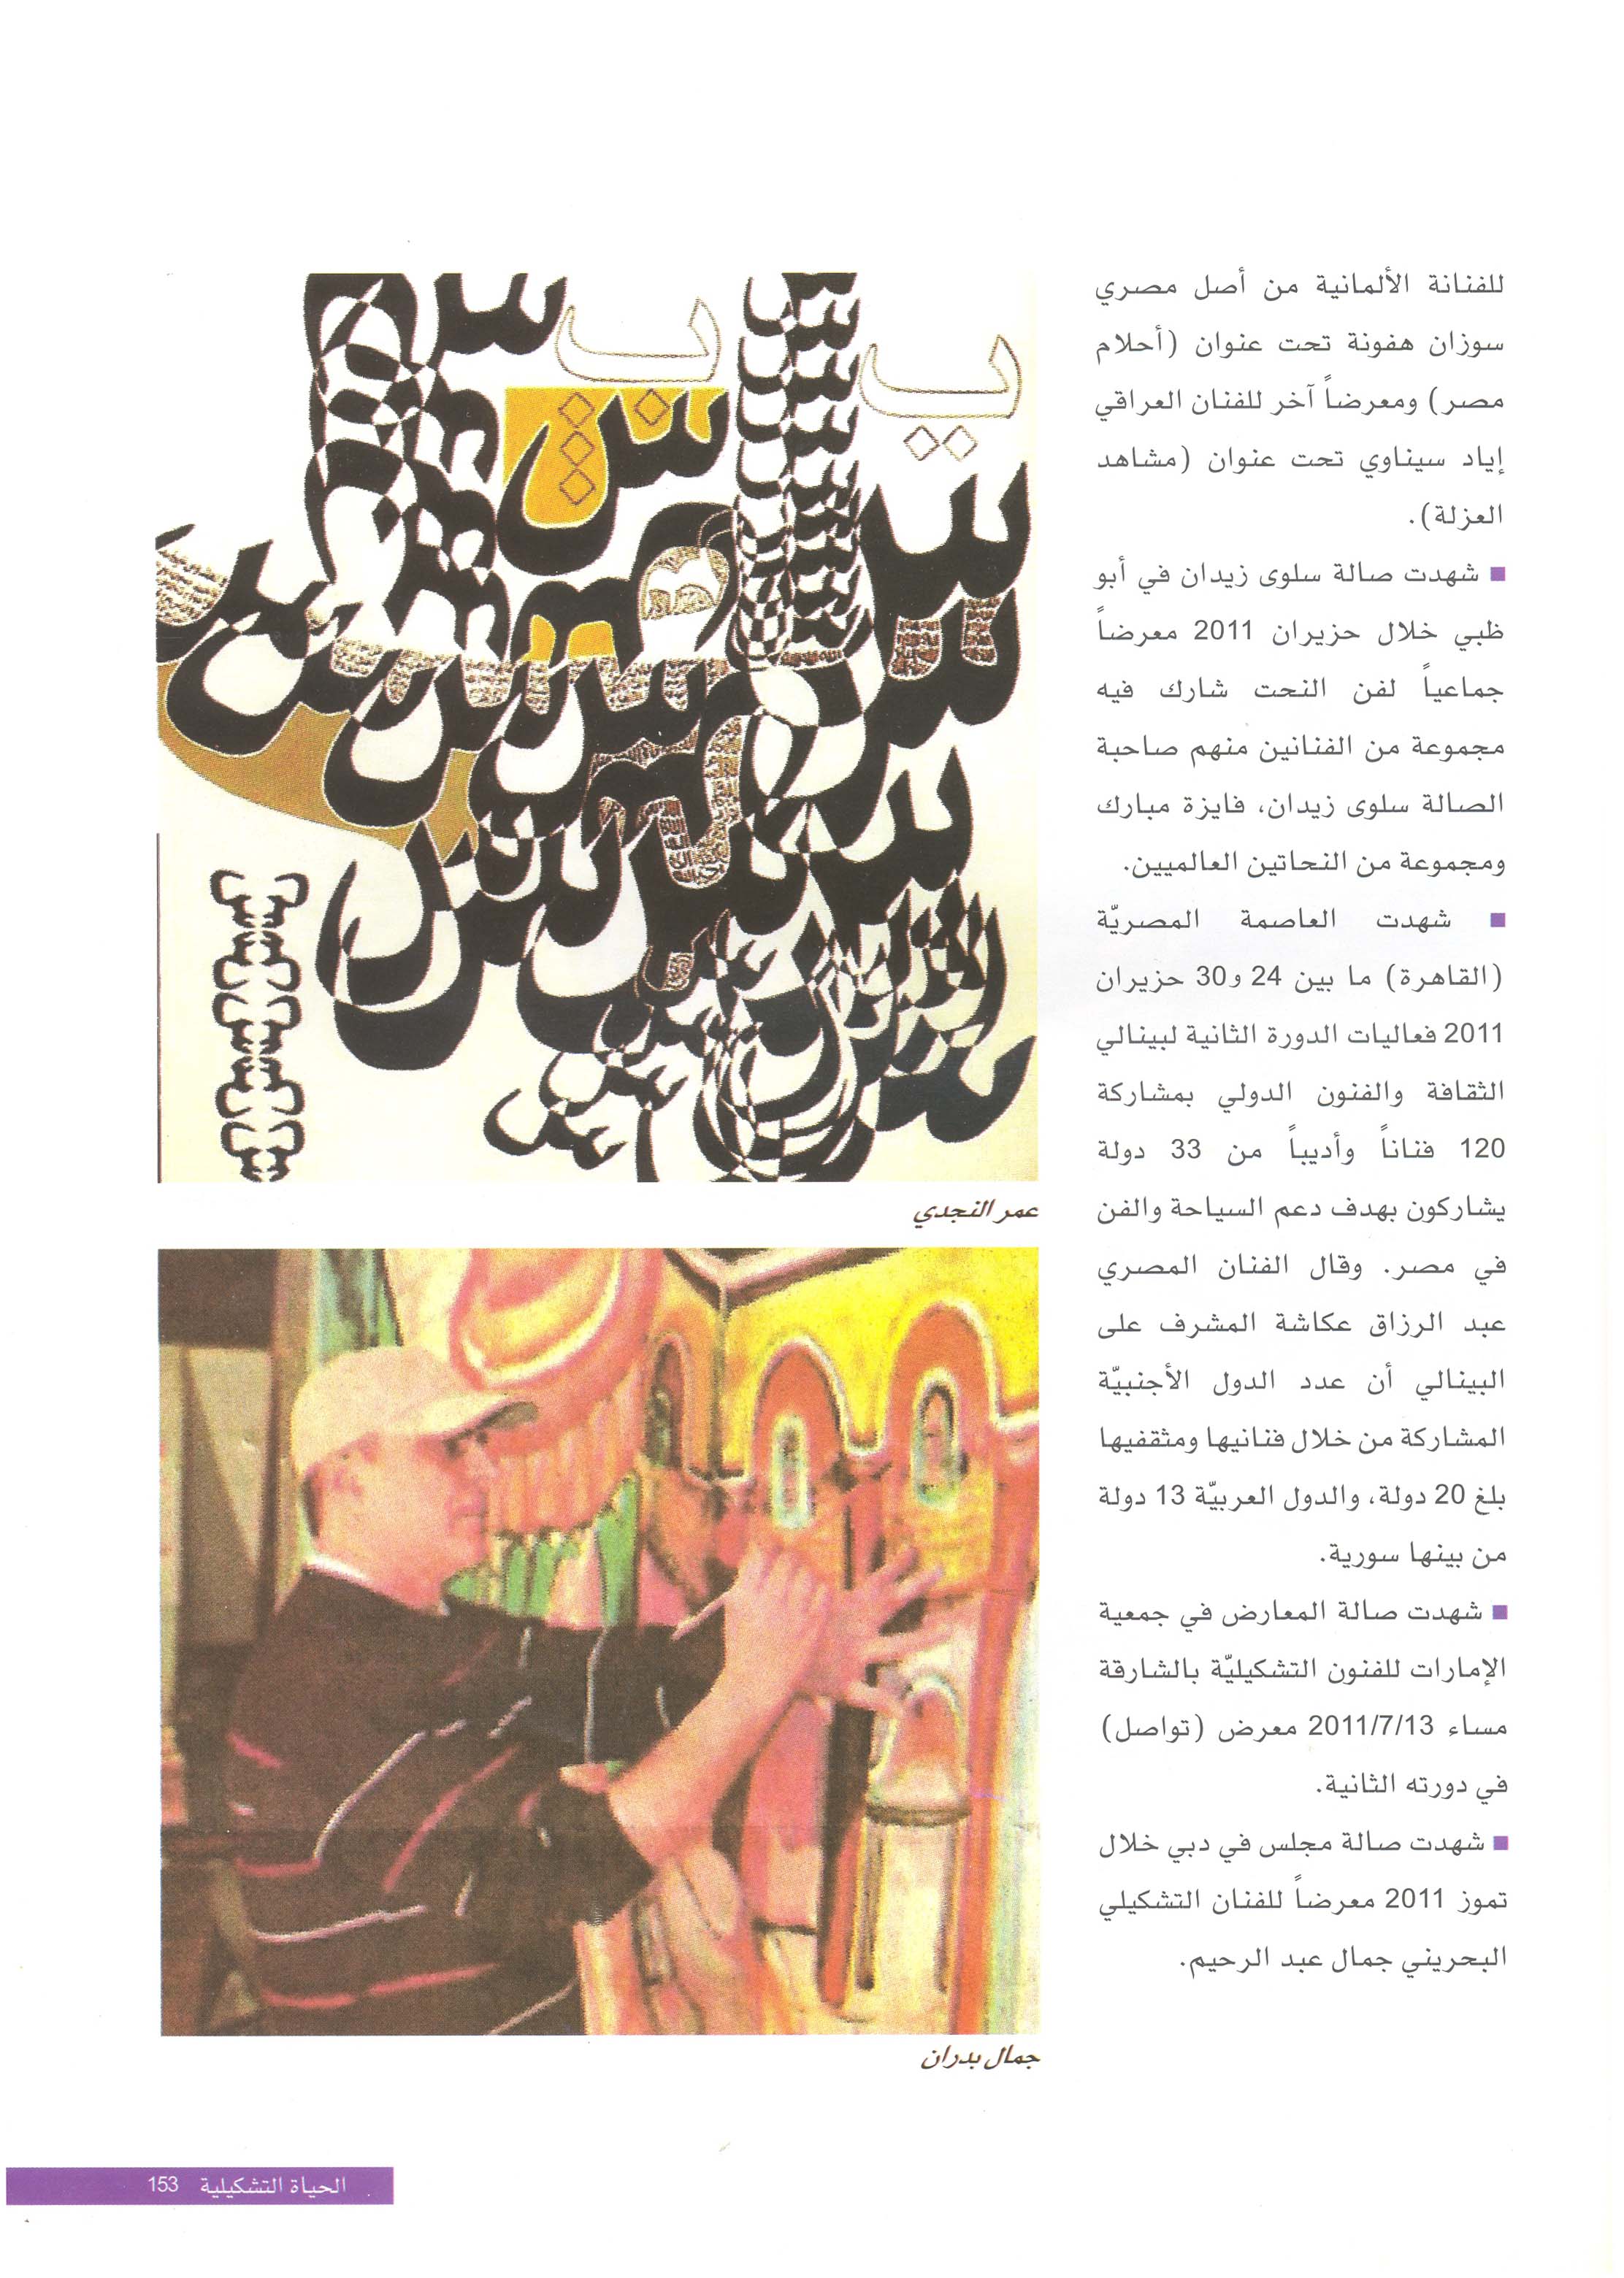 للفنانة الألمانية من أصل مصري
سوزان هفونة تحت عنوان (أحلام
مصر) ومعرضاً آخر للفنان العراقي
إياد سيناوي تحت عنوان (مشاهد
العزلة).
■ شهدت صالة سلوى زيدان في أبو
ظبي خلال حزيران 2011 معرضاً
جماعياً لفن النحت شارك فيه
مجموعة من الفنانين منهم صاحبة
الصالة سلوى زيدان، فايزة مبارك
ومجموعة من النحاتين العالميين.
■ شهدت العاصمة المصريّة
(القاهرة) ما بين 24 و30 حزيران
2011 فعاليات الدورة الثانية لبينالي
الثقافة والفنون الدولي بمشاركة
120 فناناً وأديباً من 33 دولة
يشاركون بهدف دعم السياحة والفن
في مصر. وقال الفنان المصري
عبد الرزاق عكاشة المشرف على
البينالي أن عدد الدول الأجنبيّة
المشاركة من خلال فنانيها ومثقفيها
بلغ 20 دولة، والدول العربيّة 13 دولة
من بينها سورية.
■ شهدت صالة المعارض في جمعية
الإمارات للفنون التشكيليّة بالشارقة
مساء 2011/7/13 معرض (تواصل)
في دورته الثانية.
■ شهدت صالة مجلس في دبي خلال
تموز 2011 معرضاً للفنان التشكيلي
البحريني جمال عبد الرحيم.
عمر النجدي
جمال بدران
الحياة التشكيلية 153